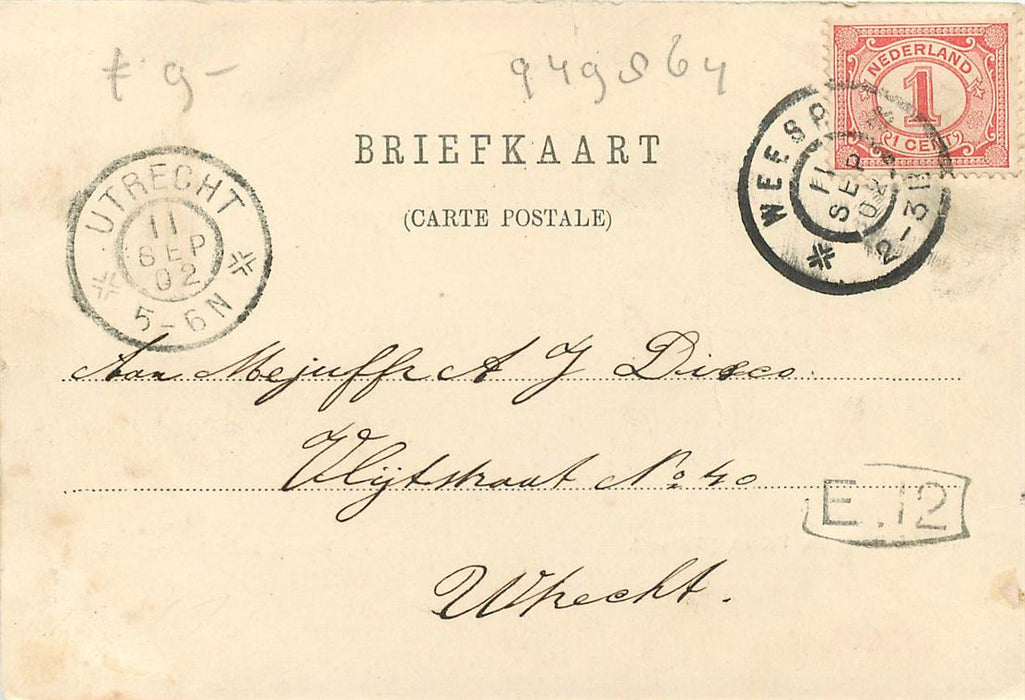 t. 9-
949864
NEDERLAND
1
(1 CENT)
BRIEFKAART
(CARTE POSTALE)
WEESP
11
SEP
02
2-3
UTRECHT
11
SEP
02
5-6N
Aan Mejuffr A J Disco
Vlijtstraat No 40
E.12
Utrecht.